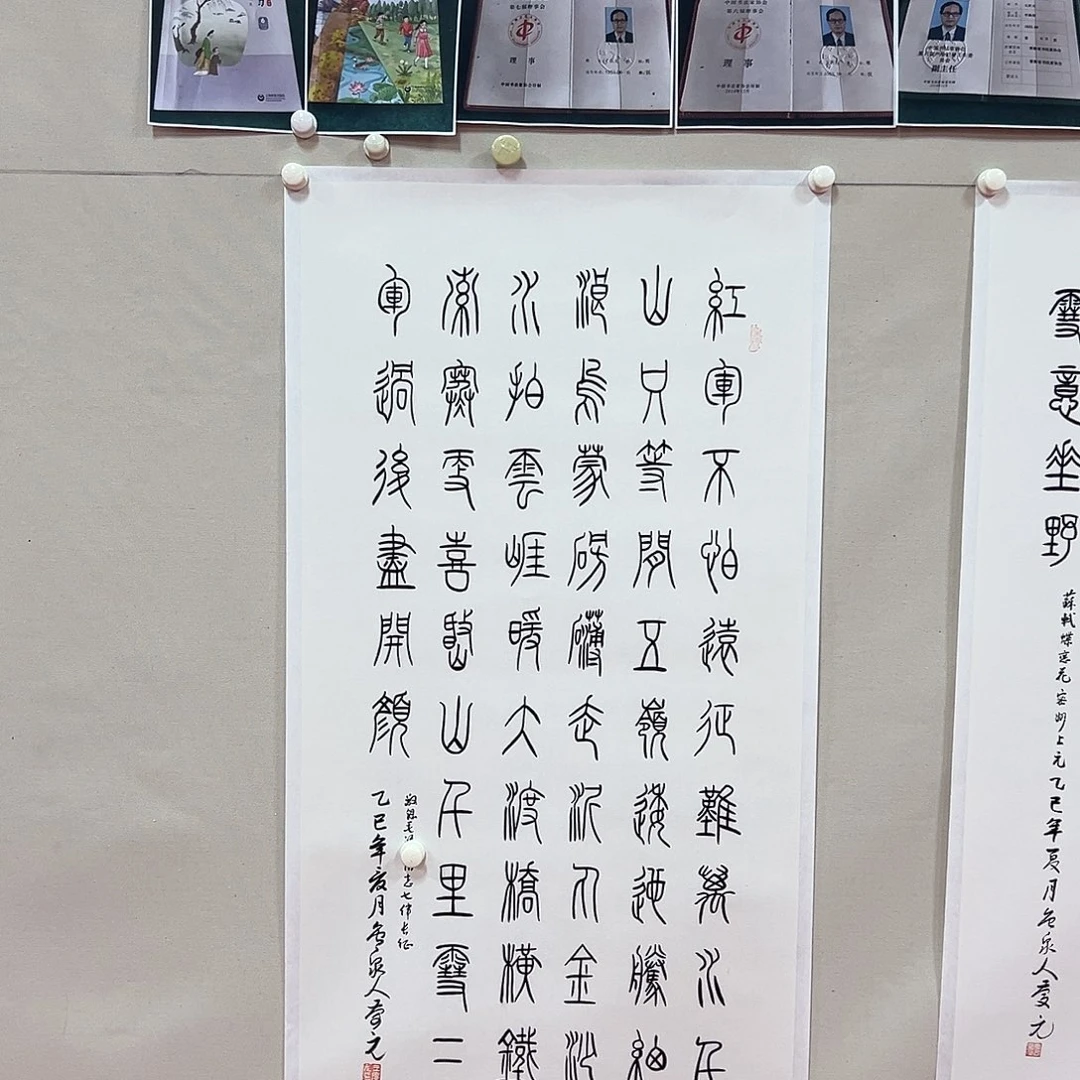 第七届理事会
理事
理事
副主任
紅軍不怕遠征難萬水千
山只等閒五嶺逶迤騰細
浪烏蒙磅礴走泥丸金沙
水拍雲崖暖大渡橋橫鐵
索寒更喜岷山千里雪
軍過後盡開顏
敬錄毛 志七律長征
乙巳年夏月 泉人 元
雪意垂野
蘇軾蝶戀花密州上元乙巳年夏月 泉人 元